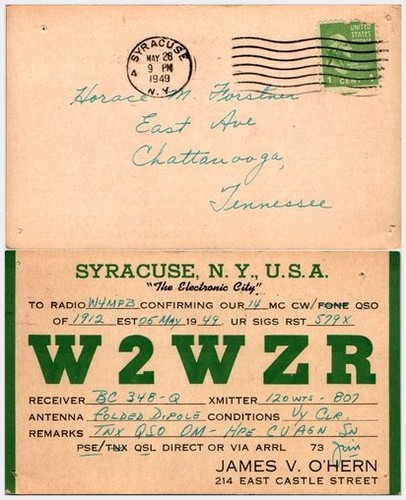 SYRACUSE
4
MAY 28
9 PM
1949
N.Y.
UNITED
STATES
POSTAGE
1 CENT 1
Horace M. Forstner
East Ave
Chattanooga,
Tennessee
SYRACUSE, N. Y., U. S. A.
"The Electronic City"
TO RADIO W4MPB CONFIRMING OUR 14 MC CW/FONE QSO
OF 1912 EST 05 MAY 1949. UR SIGS RST 579X
W2WZR
RECEIVER BC 348-Q XMITTER 120 WTS - 807
ANTENNA FOLDED DIPOLE CONDITIONS VY CLR.
REMARKS TNX QSO OM - HPE CUAGN SN
PSE/TNX QSL DIRECT OR VIA ARRL 73 Jim
JAMES V. O'HERN
214 EAST CASTLE STREET